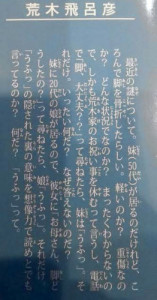 荒木飛呂彦
最近の謎について。妹(50代)が居るのだけれど、こ
ろんで脚を骨折したらしい。軽いのか? 重傷なの
か? どんな状況でなのか? まったくわからないの
で、しかも荒木家のお祝い事を休むって言うし、電話
で「脚、大丈夫?」って尋ねたら、妹は「うふっ」。そ
れだけ。いったい何だ? なぜ答えないのだ?
妹に20代の娘が居るので、彼女に「お母さん、脚ど
うしたの?」って尋ねたら、娘も「うふっ」。それだけ。
「うふっ」の隠された裏の意味を想像力で読めとでも
言ってるのか? 何だ? 「うふっ」って。